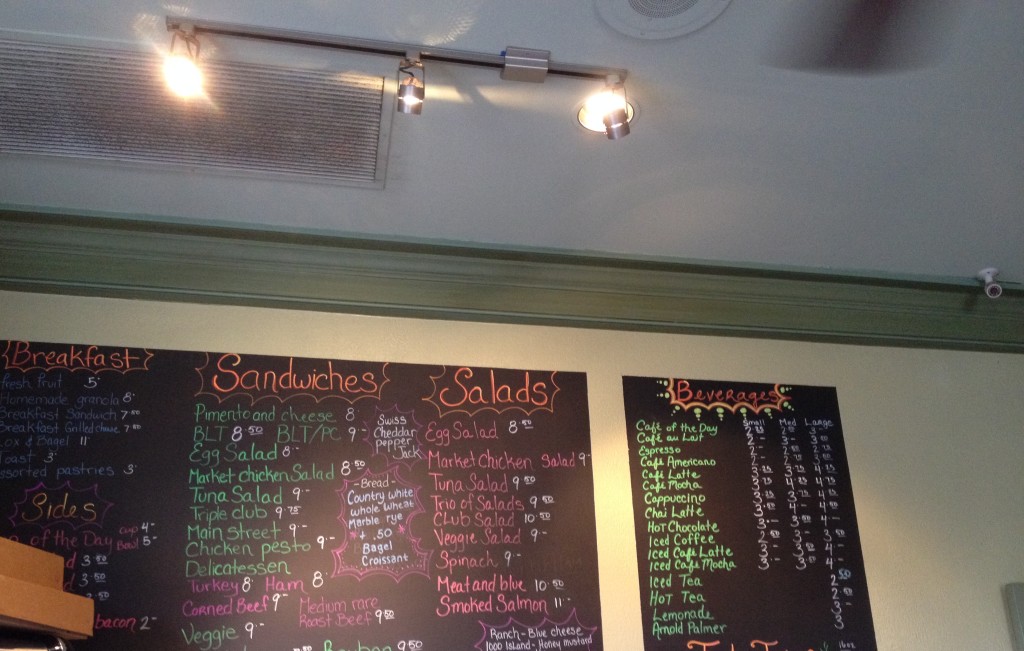 Breakfast
fresh fruit 5.
Homemade granola 8.
Breakfast Sandwich 7.50
Breakfast Grilled cheese 7.50
Lox & Bagel 11
Toast 3.
assorted pastries 3.
Sides
of the Day cup 4-
Bowl 5-
3.50
3.50
bacon 2-
Sandwiches
Pimento and cheese 8.
BLT 8.50 BLT/PC 9-
Egg Salad 8-
Market chicken Salad 8.50
Tuna Salad 9-
Triple club 9.75
Main street 9-
Chicken pesto 9-
Delicatessen
Turkey 8. Ham 8.
Corned Beef 9- Medium rare
Roast Beef 9.50
Veggie 9-
Reuben 9.50
Swiss
Cheddar
pepper
Jack
-Bread-
Country white
whole wheat
Marble rye
+ .50
Bagel
Croissant
Salads
Egg Salad 8.50
Market Chicken Salad 9-
Tuna Salad 9.50
Trio of Salads 9.50
Club Salad 10.50
Veggie Salad 9-
Spinach 9-
Meat and blue 10.50
Smoked Salmon 11-
Ranch - Blue cheese
1000 Island - Honey mustard
Beverages
Small Med Large
Café of the Day
Café au Lait
Espresso
Café Americano
Café Latte
Café Mocha
Cappuccino
Chai Latte
Hot Chocolate
Iced Coffee
Iced Café Latte
Iced Café Mocha
Iced Tea
Hot Tea
Lemonade
Arnold Palmer